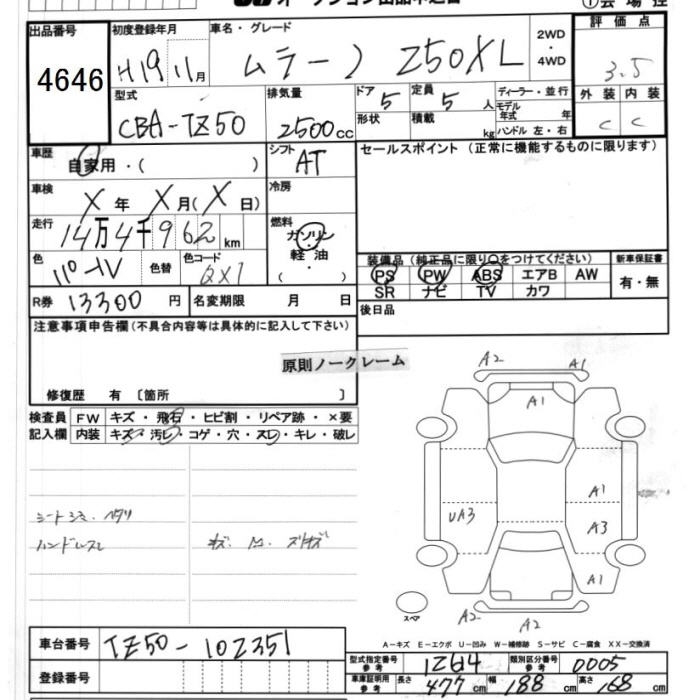 出品番号 4646
初度登録年月 H19 11月
車名・グレード ムラーノ 250XL
2WD・4WD
評価点 3.5
型式 CBA-TZ50
排気量 2500cc
ドア 5
形状
定員 5人
積載 kg
ディーラー・並行
モデル年式 年
ハンドル 左・右
外装 C
内装 C
車歴 自家用・( )
シフト AT
セールスポイント (正常に機能するものに限ります)
車検 X年 X月(X日)
冷房
走行 14万4千962km
燃料 ガソリン・軽油
色 パール
色替
色コード QX1
装備品 (純正品に限り○をつけてください)
新車保証書
PS PW ABS エアB AW
有・無
SR ナビ TV カワ
R券 13300円
名変期限 月 日
後日品
注意事項申告欄(不具合内容等は具体的に記入して下さい)
原則ノークレーム
修復歴 有〔箇所 〕
検査員記入欄
FW キズ・飛石・ヒビ割・リペア跡・×要
内装 キズ・汚レ・コゲ・穴・スレ・キレ・破レ
シートシミ・ヘタリ
ハンドルスレ
A2 A1
A1
A1
UA3 A3
A1
スペア
A2 A2
A－キズ E－エクボ U－凹み W－補修跡 S－サビ C－腐食 XX－交換済
車台番号 TZ50-102351
登録番号
型式指定番号 参考
類別区分番号 参考 0005
車庫証明用 参考 長さ 477cm 幅 188cm 高さ 168cm